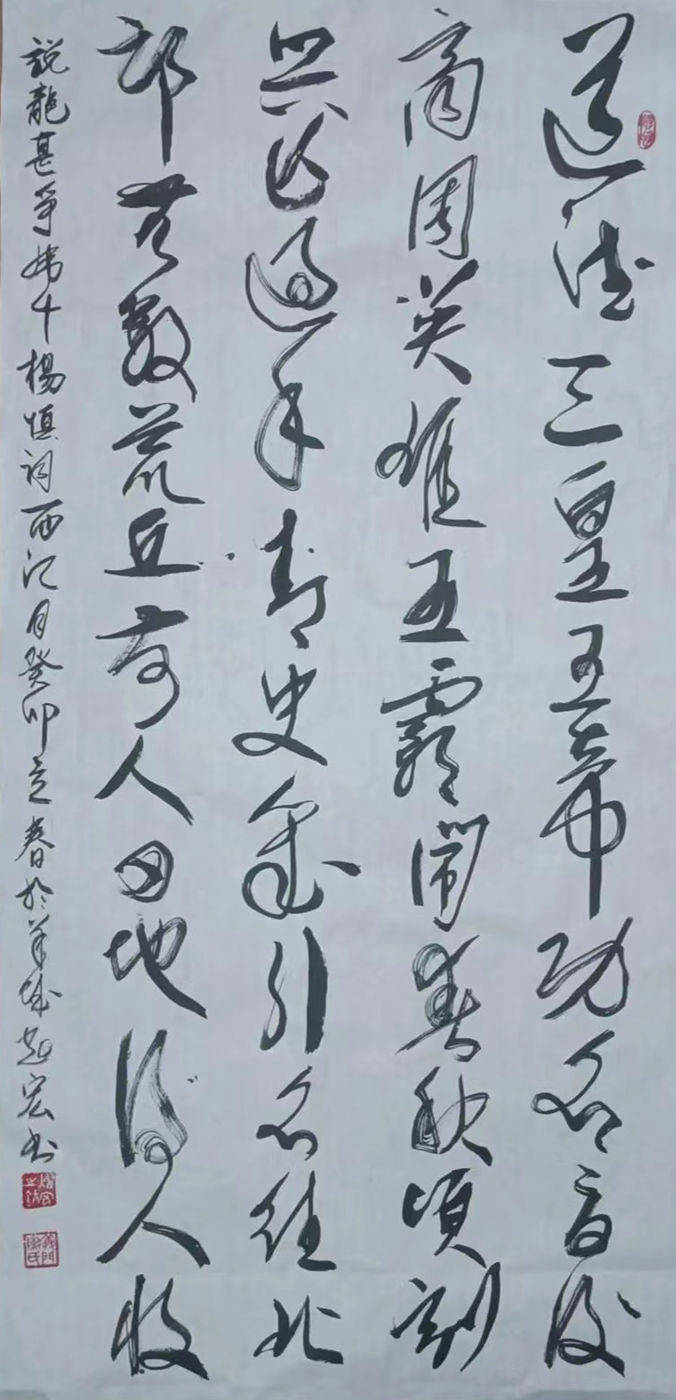 道德三皇五帝功名夏後
商周英雄五霸鬧春秋頃刻
興亡過手青史幾行名姓北
邙無數荒丘前人田地後人收
說龍甚爭虎斗楊慎詞西江月癸卯立春於羊城宏书